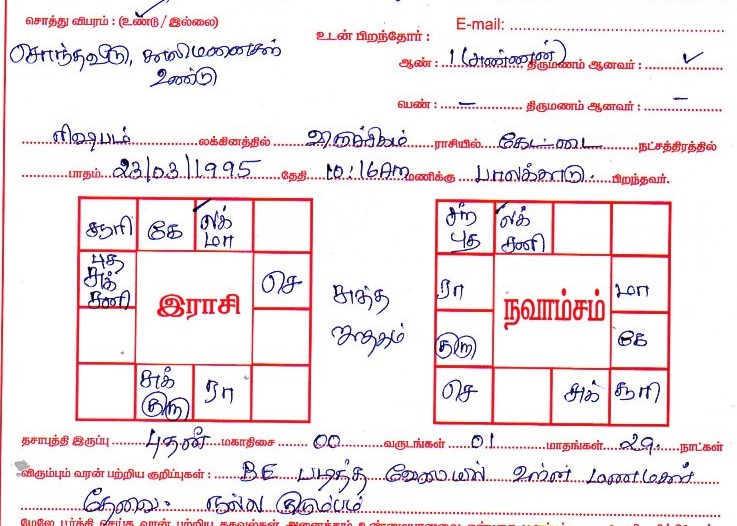 சொத்து விபரம் : (உண்டு / இல்லை)
E-mail:
சொந்தவீடு, காலிமனைகள்
உண்டு
உடன் பிறந்தோர் :
ஆண் : 1 (அண்ணன்) திருமணம் ஆனவர் : ✓
பெண் : – திருமணம் ஆனவர் : –
ரிஷபம் லக்கினத்தில் விருச்சிகம் ராசியில் கேட்டை நட்சத்திரத்தில்
பாதம் 23/03/1995 தேதி 10:16AM மணிக்கு பாலக்காடு. பிறந்தவர்.
சூரி கே லக்
மா
புத
சுக்
சனி
செ
இராசி
சுக்
குரு
ரா
சுத்த
ஜாதகம்
சந்
புத
லக்
சனி
ரா மா
நவாம்சம்
குரு கே
செ சுக் சூரி
தசாபுத்தி இருப்பு புதன் மகாதிசை 00 வருடங்கள் 01 மாதங்கள் 29 நாட்கள்
விரும்பும் வரன் பற்றிய குறிப்புகள் : B.E படித்த வேலையில் உள்ள மணமகன்
தேவை. நல்ல குடும்பம்